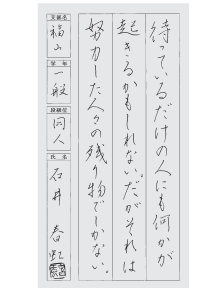 待っているだけの人にも何かが
起きるかもしれない。だがそれは
努力した人々の残り物でしかない。
支部名
福山
学年
一般
段級位
同人
氏名
石井 春虹